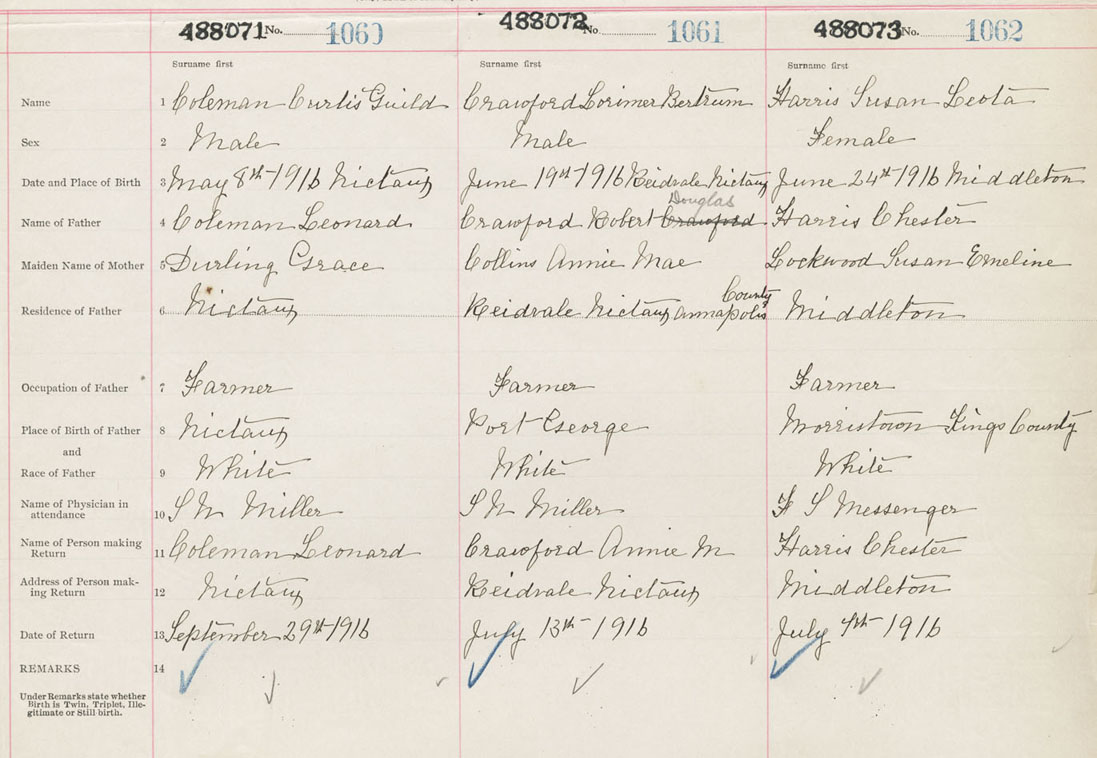 488071 No. 1060 488072 No 1061 488073 No. 1062
Surname first Surname first Surname first
Name 1 Coleman Curtis Guild Crawford Lorimer Bertrum Harris Susan Leota
Sex 2 Male Male Female
Date and Place of Birth 3 May 8th 1916 Nictaux June 19th 1916 Reidvale Nictaux June 24th 1916 Middleton
Douglas
Name of Father 4 Coleman Leonard Crawford Robert Crawford Harris Chester
Maiden Name of Mother 5 Durling Grace Collins Annie Mae Lockwood Susan Emeline
County
Residence of Father 6 Nictaux Reidvale Nictaux Annapolis Middleton
Occupation of Father 7 Farmer Farmer Farmer
Place of Birth of Father 8 Nictaux Port George Morristown Kings County
and
Race of Father 9 White White White
Name of Physician in
attendance 10 S N Miller S N Miller F S Messenger
Name of Person making
Return 11 Coleman Leonard Crawford Annie M Harris Chester
Address of Person mak-
ing Return 12 Nictaux Reidvale Nictaux Middleton
Date of Return 13 September 29th 1916 July 13th 1916 July 4th 1916
REMARKS 14
Under Remarks state whether
Birth is Twin, Triplet, Ille-
gitimate or Still birth.